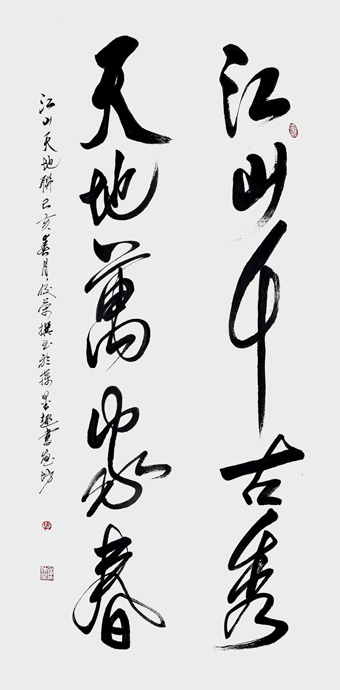 江山千古秀
天地萬象春
江山天地聯己亥春月俊榮撰書於探墨趣書道坊